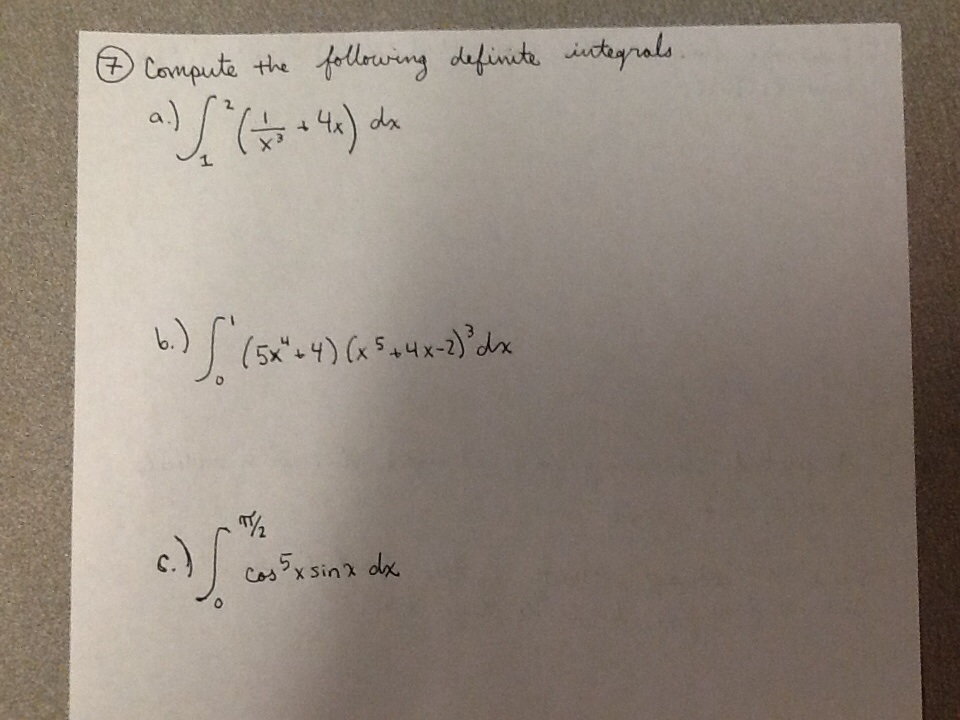 ⑦ Compute the following definite integrals.
a.) ∫₁² (1/x³ + 4x) dx
b.) ∫₀¹ (5x⁴+4)(x⁵+4x-2)³dx
c.) ∫₀^(π/2) cos⁵x sinx dx